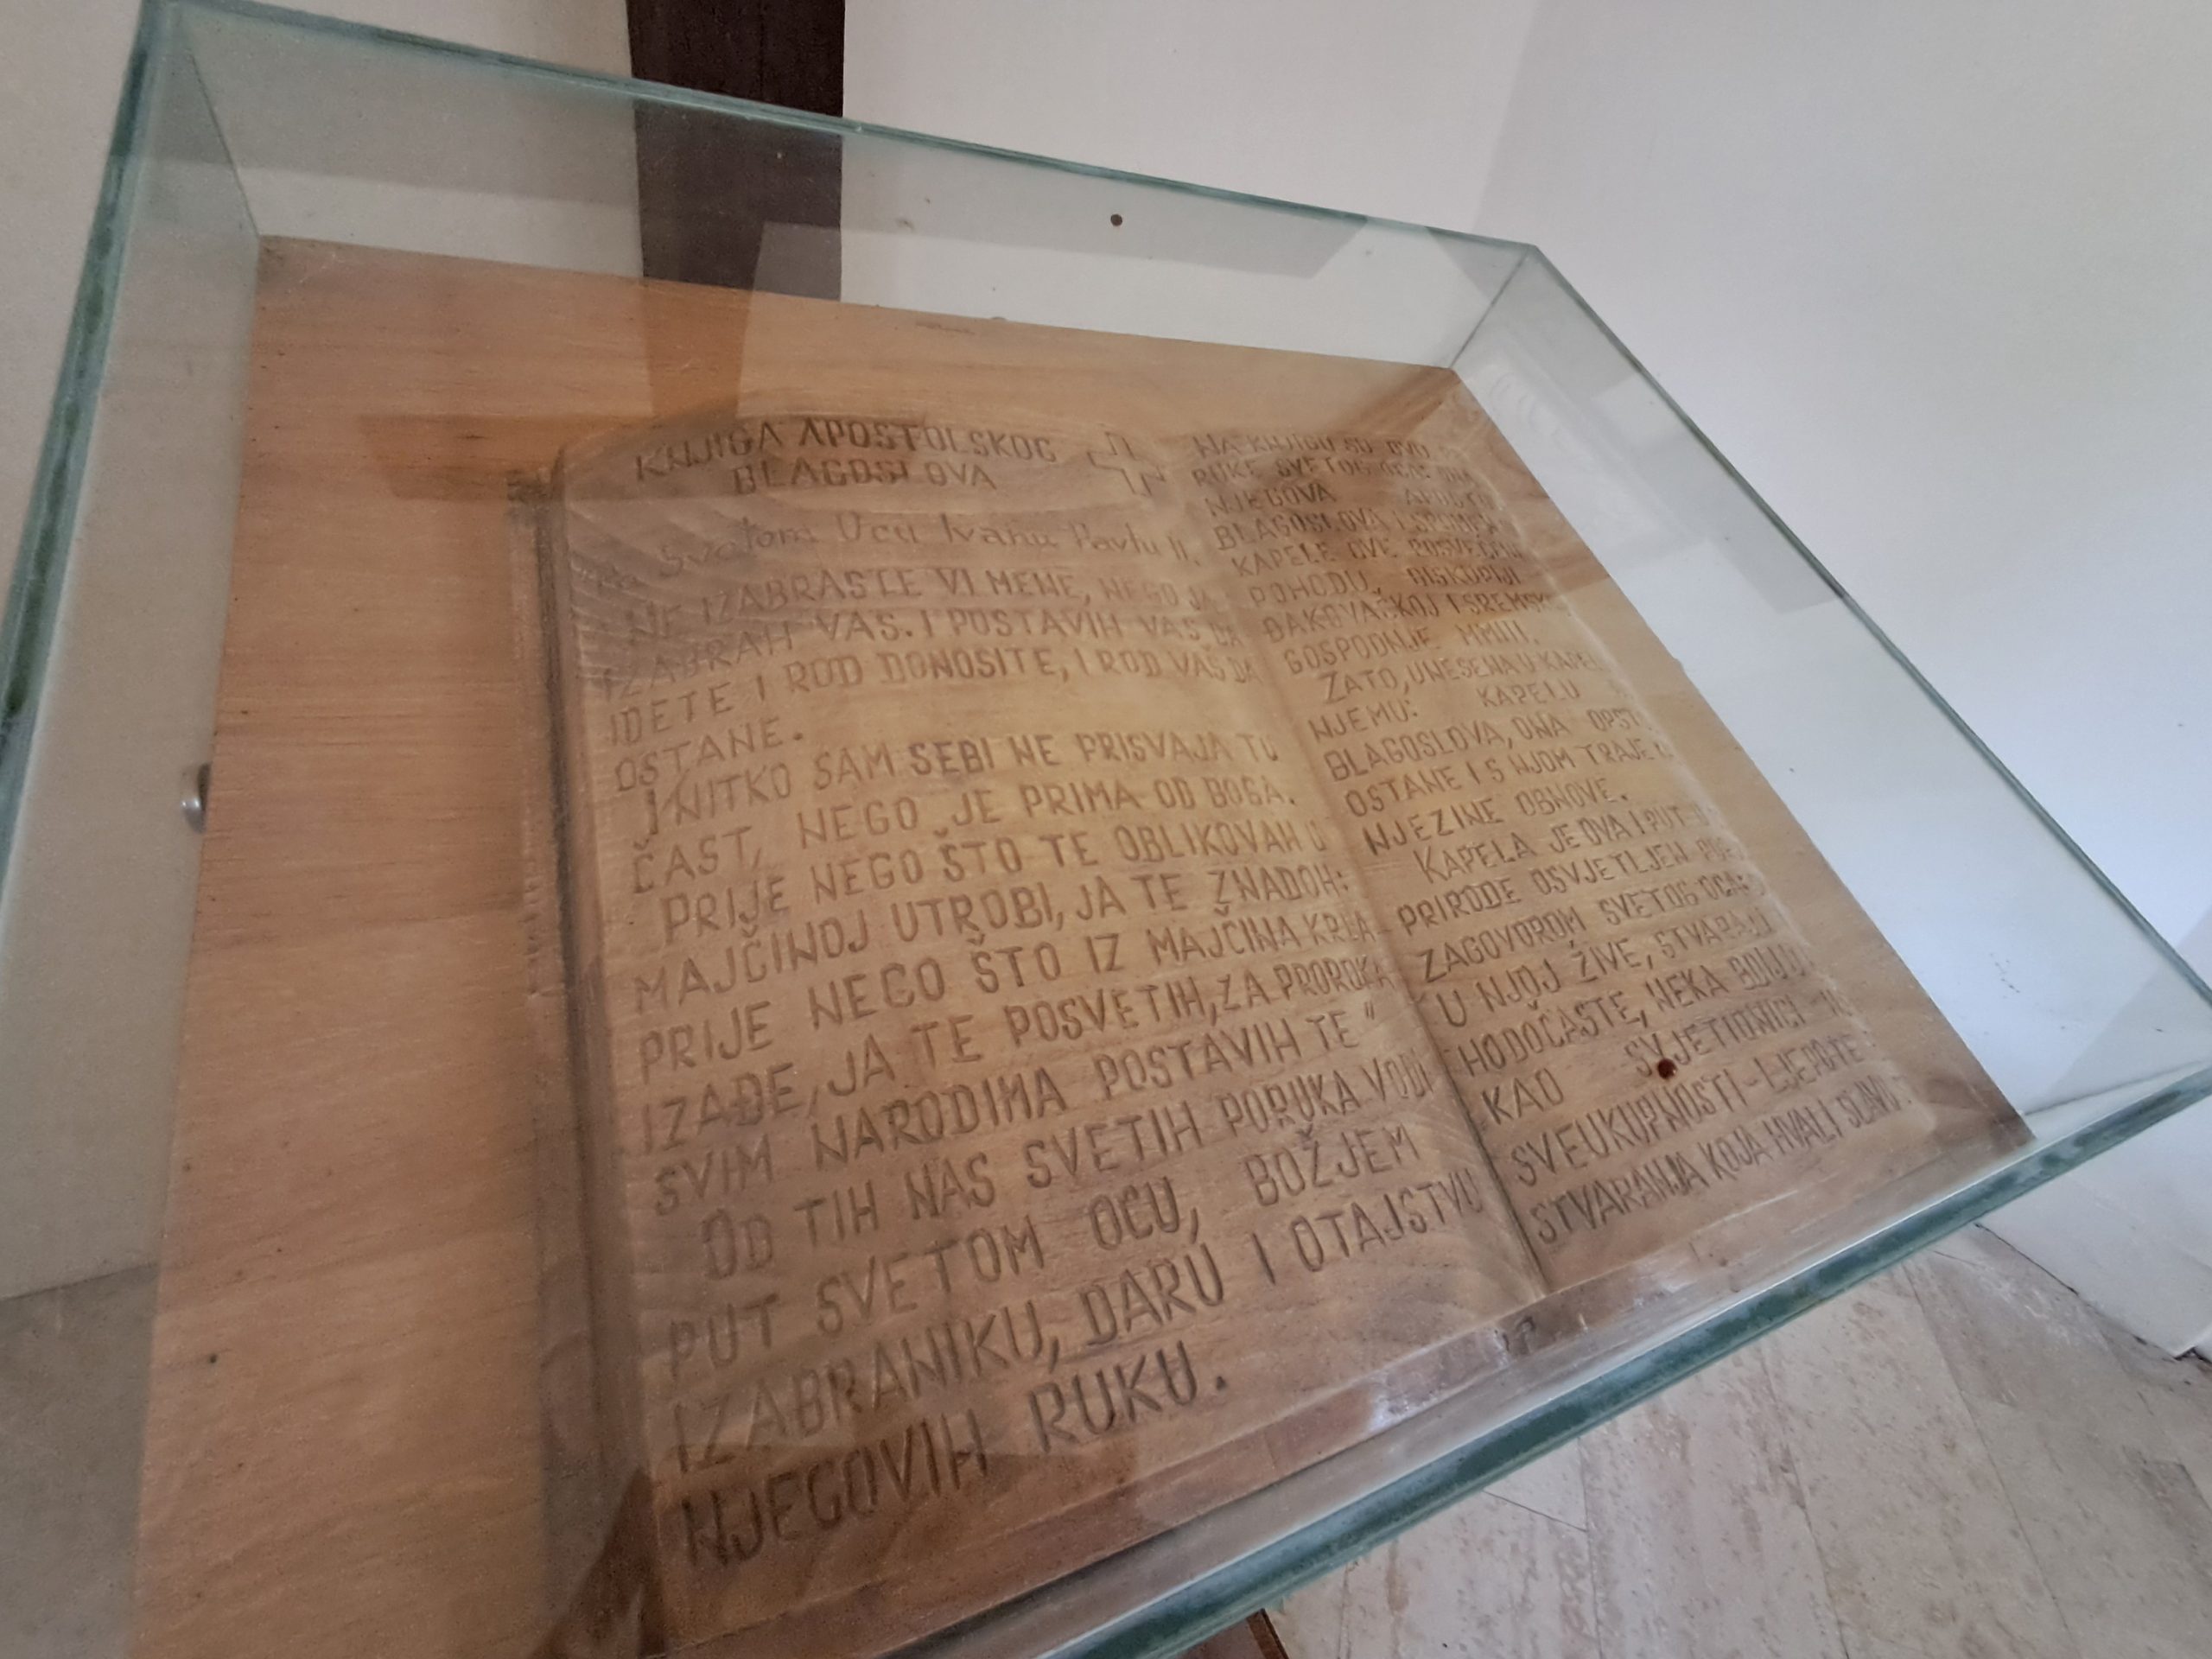 KNJIGA APOSTOLSKOG
BLAGOSLOVA
Svetom Ocu Ivanu Pavlu II.
NE IZABRASTE VI MENE, NEGO JA
IZABRAH VAS. I POSTAVIH VAS DA
IDETE I ROD DONOSITE, I ROD VAŠ DA
OSTANE.
I NITKO SAM SEBI NE PRISVAJA TU
ČAST, NEGO JE PRIMA OD BOGA.
PRIJE NEGO ŠTO TE OBLIKOVAH U
MAJČINOJ UTROBI, JA TE ZNADOH:
PRIJE NEGO ŠTO IZ MAJČINA KRILA
IZAĐE, JA TE POSVETIH, ZA PROROKA
SVIM NARODIMA POSTAVIH TE"
OD TIH NAS SVETIH PORUKA VODI
PUT SVETOM OCU, BOŽJEM
IZABRANIKU, DARU I OTAJSTVU
NJEGOVIH RUKU.
NA KNJIGU SU OVU
RUKE SVETOG OCA
NJEGOVA
BLAGOSLOVA I
KAPELE OVE
POHODU, BISKUPIJI
ĐAKOVAČKOJ I
GOSPODNJE MMIII.
ZATO, UNESENA U
NJEMU: KAPELU
BLAGOSLOVA, ONA
OSTANE I S NJOM TRAJE
NJEZINE OBNOVE.
KAPELA JE OVA I PUT
PRIRODE OSVJETLJEN
ZAGOVOROM SVETOG OCA:
U NJOJ ŽIVE, STVARAJU
HODOČASTE, NEKA BDIJU
KAO SVJETIONICI
SVEUKUPNOSTI - LJEPOTE
STVARANJA KOJA HVALI SLAVU